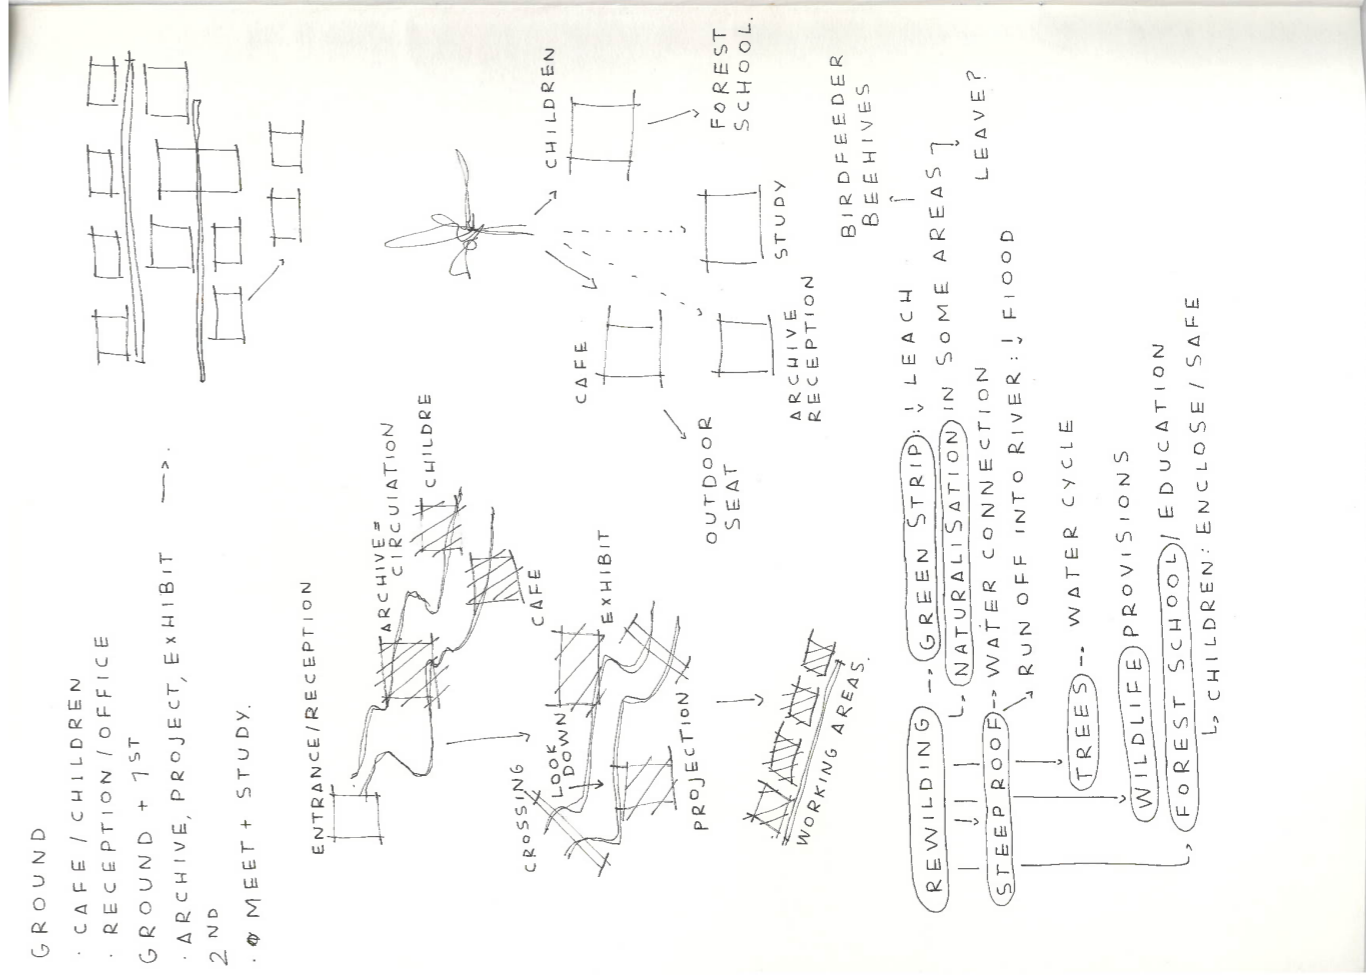 GROUND
· CAFE / CHILDREN
· RECEPTION / OFFICE
GROUND + 1ST
· ARCHIVE, PROJECT, EXHIBIT →.
2ND
· MEET + STUDY.
ENTRANCE/RECEPTION
ARCHIVE =
CIRCUIATION
CHILDRE
CAFE
CROSSING
LOOK
DOWN
EXHIBIT
PROJECTION
WORKING AREAS.
CHILDREN
FOREST
SCHOOL.
CAFE
STUDY
ARCHIVE
RECEPTION
OUTDOOR
SEAT
BIRDFEEDER
BEEHIVES
REWILDING --> GREEN STRIP: ! LEACH
NATURALISATION IN SOME AREAS?
LEAVE?
STEEPROOF --> WATER CONNECTION
RUN OFF INTO RIVER: ! FIOOD
TREES -- WATER CYCLE
WILDLIFE PROVISIONS
FOREST SCHOOL / EDUCATION
CHILDREN: ENCLOSE / SAFE